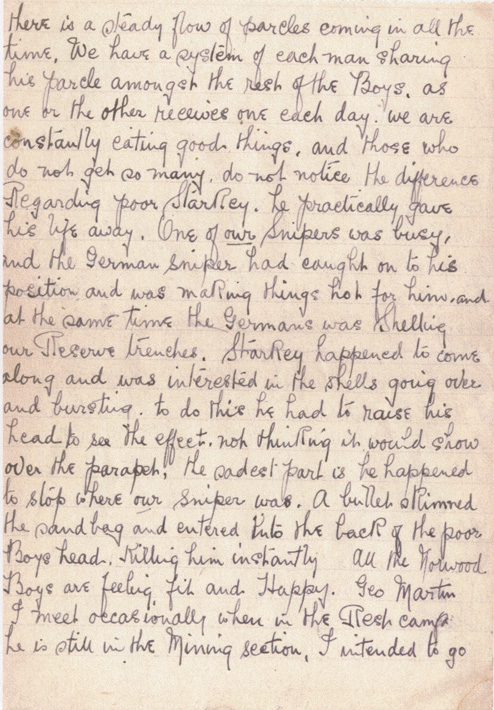 there is a steady flow of parcles coming in all the
time, We have a system of each man sharing
his parcle amongst the rest of the Boys, as
one or the other receives one each day. we are
constantly eating good things, and those who
do not get so many, do not notice the difference
Regarding poor Starkey. he practically gave
his life away. One of our Snipers was busy,
and the German sniper had caught on to his
position and was making things hot for him, and
at the same time the Germans was Shelling
our Reserve trenches. Starkey happened to come
along and was interested in the shells going over
and bursting. to do this he had to raise his
head to see the effect. not thinking it would show
over the parapet, the sadest part is he happened
to stop where our sniper was. A bullet skimned
the sandbag and entered into the back of the poor
Boys head. Killing him instantly All the Norwood
Boys are feeling fit and Happy. Geo Martin
I meet occasionally when in the Rest camp
he is still in the Mining section, I intended to go